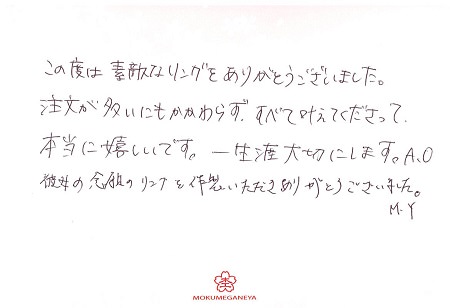 この度は素敵なリングをありがとうございました。
注文が多いにもかかわらず、すべて叶えてくださって、
本当に嬉しいです。一生涯大切にします。A.O
彼女の念願のリングを作製いただきありがとうございました。
M.Y
MOKUMEGANEYA